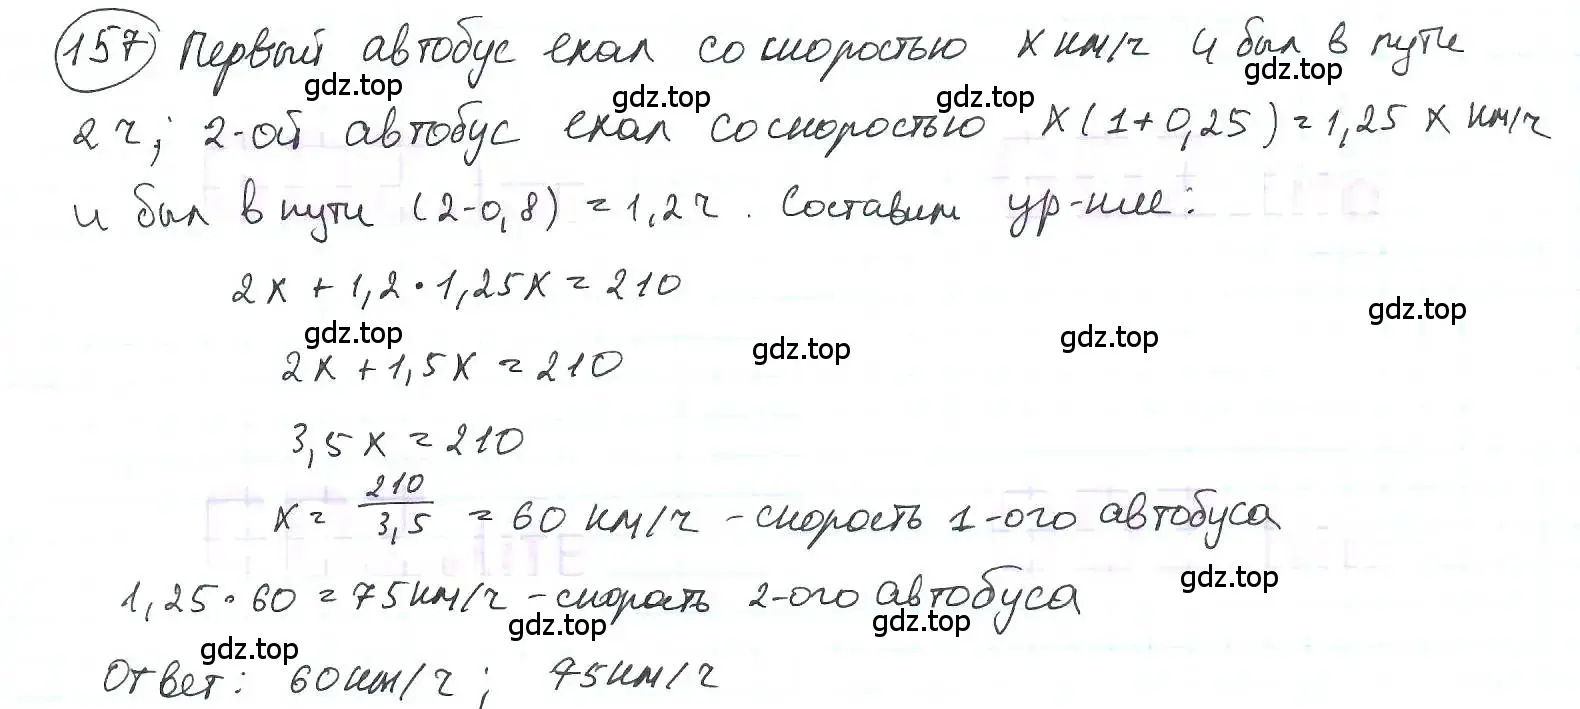 157 Первый автобус ехал со скоростью х км/ч и был в пути
gdz.top gdz.top gdz.top gdz.top
2 ч; 2-ой автобус ехал со скоростью х(1+0,25)=1,25 х км/ч
и был в пути (2-0,8)=1,2ч. Составим ур-ние:
2х+1,2·1,25х=210
gdz.top gdz.top gdz.top gdz.top
2х+1,5х=210
3,5х=210
х=210/3,5=60 км/ч -скорость 1-ого автобуса
gdz.top
1,25·60=75км/ч -скорость 2-ого автобуса
gdz.top gdz.top gdz.top
Ответ: 60км/ч; 75км/ч